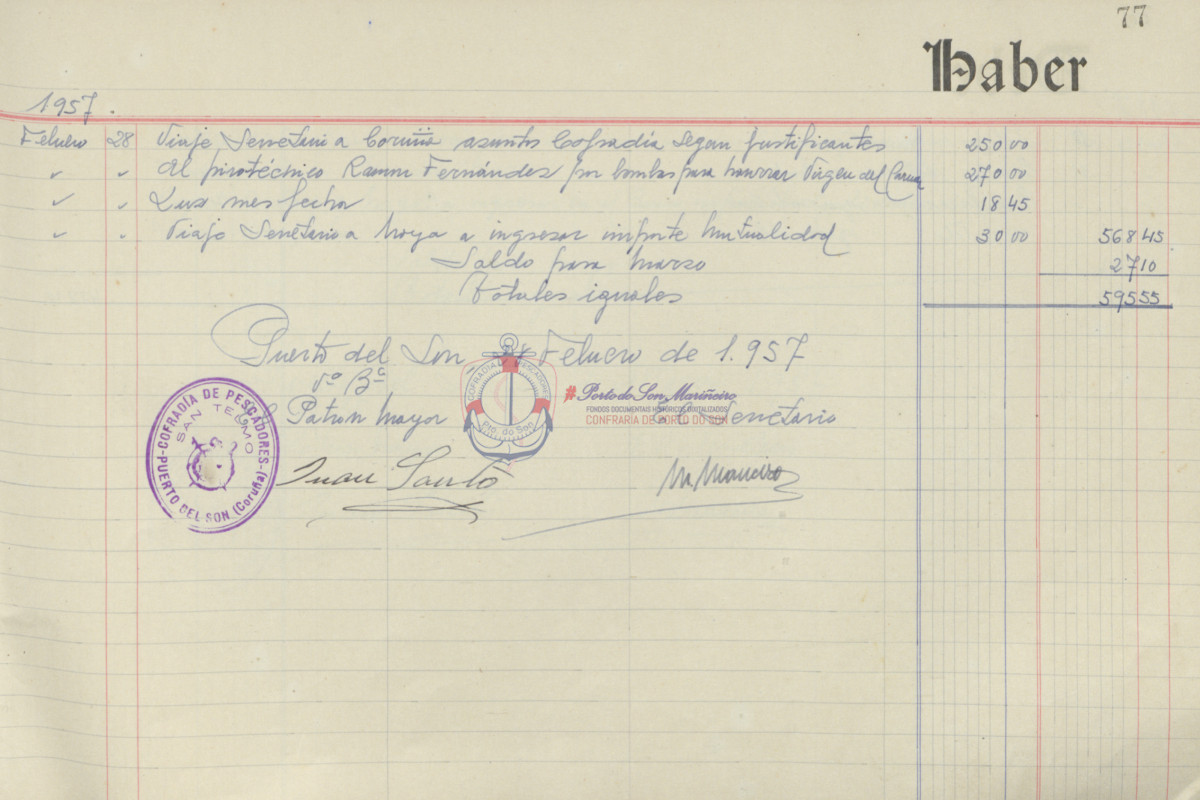 77
Haber
1957.
Febrero 28 Viaje Secretario a Coruña asuntos Cofradía según justificantes 250 00
" " Al pirotécnico Ramon Fernández por bombas para honrrar Virgen del Carmen 270 00
" " Luz mes fecha 18 45
" " Viaje Secretario a Noya a ingresar importe Mutualidad 30 00 568 45
Saldo para Marzo 27 10
Totales iguales 595 55
Puerto del Son, Febrero de 1.957
Vº Bº
Patron Mayor
El Secretario
Juan Santo
M. Maneiro
COFRADÍA DE PESCADORES
SAN TELMO
PUERTO DEL SON (Coruña)
COFRADIA DE PESCADORES
Pto. do Son
#Porto do Son Mariñeiro
FONDOS DOCUMENTAIS HISTÓRICOS DIXITALIZADOS
CONFRARÍA DE PORTO DO SON